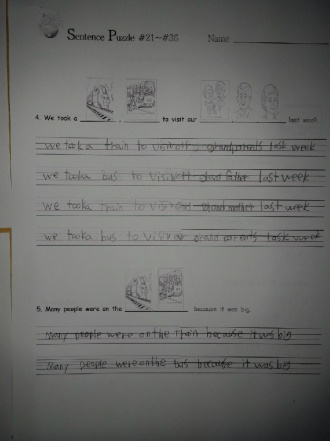 Sentence Puzzle #21~#36 Name
4. We took a , to visit our , last week.
we took a train to visit grandparents last week
we took a bus to visit grand father last week
we took a train to visit grand mother last week
we took a bus to visit our grand parents last week
5. Many people were on the because it was big.
Many people were on the train because it was big
Many people were on the bus because it was big